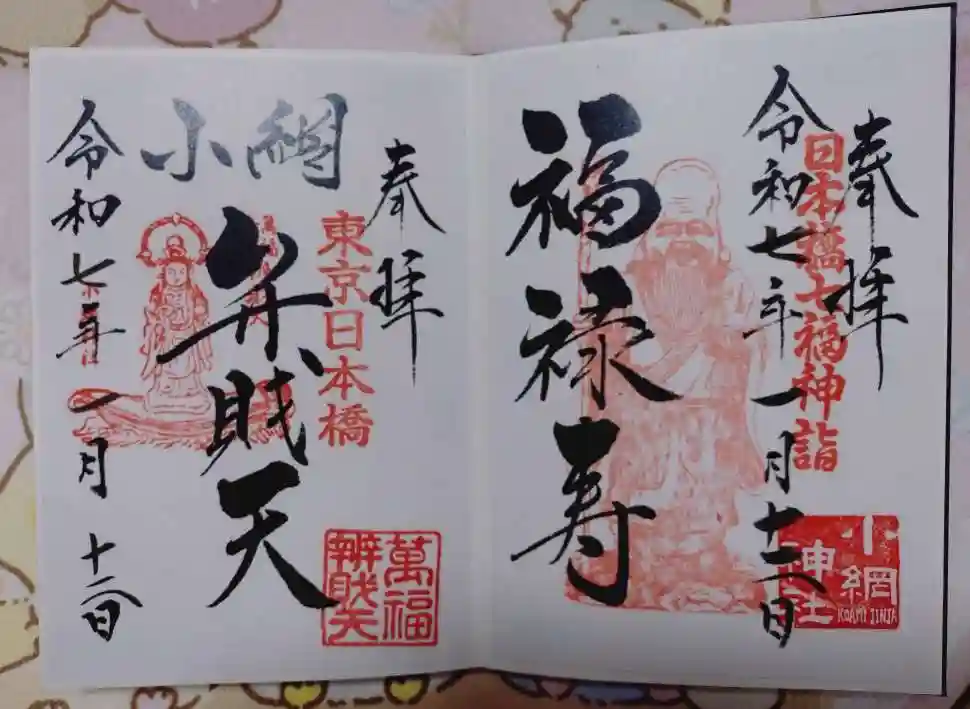 奉拝
日本橋七福神詣
令和七年一月十二日
小網神社
KOAMI JINJA
福禄寿
奉拝
東京日本橋
小網
弁財天
萬福辨財天
令和七年一月十二日